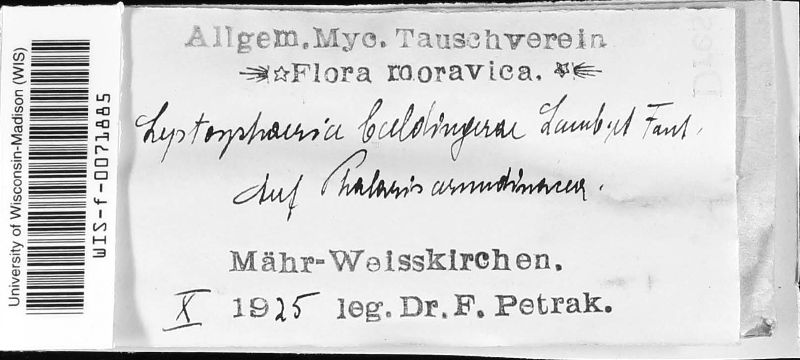 University of Wisconsin-Madison (WIS)
WIS-f-0071885
Allgem. Myc. Tauschverein
Flora moravica.
Leptosphaeria baldingerae Lamb. et Faut.
Auf Phalaris arundinacea.
Mähr-Weisskirchen.
X 1925 leg. Dr. F. Petrak.